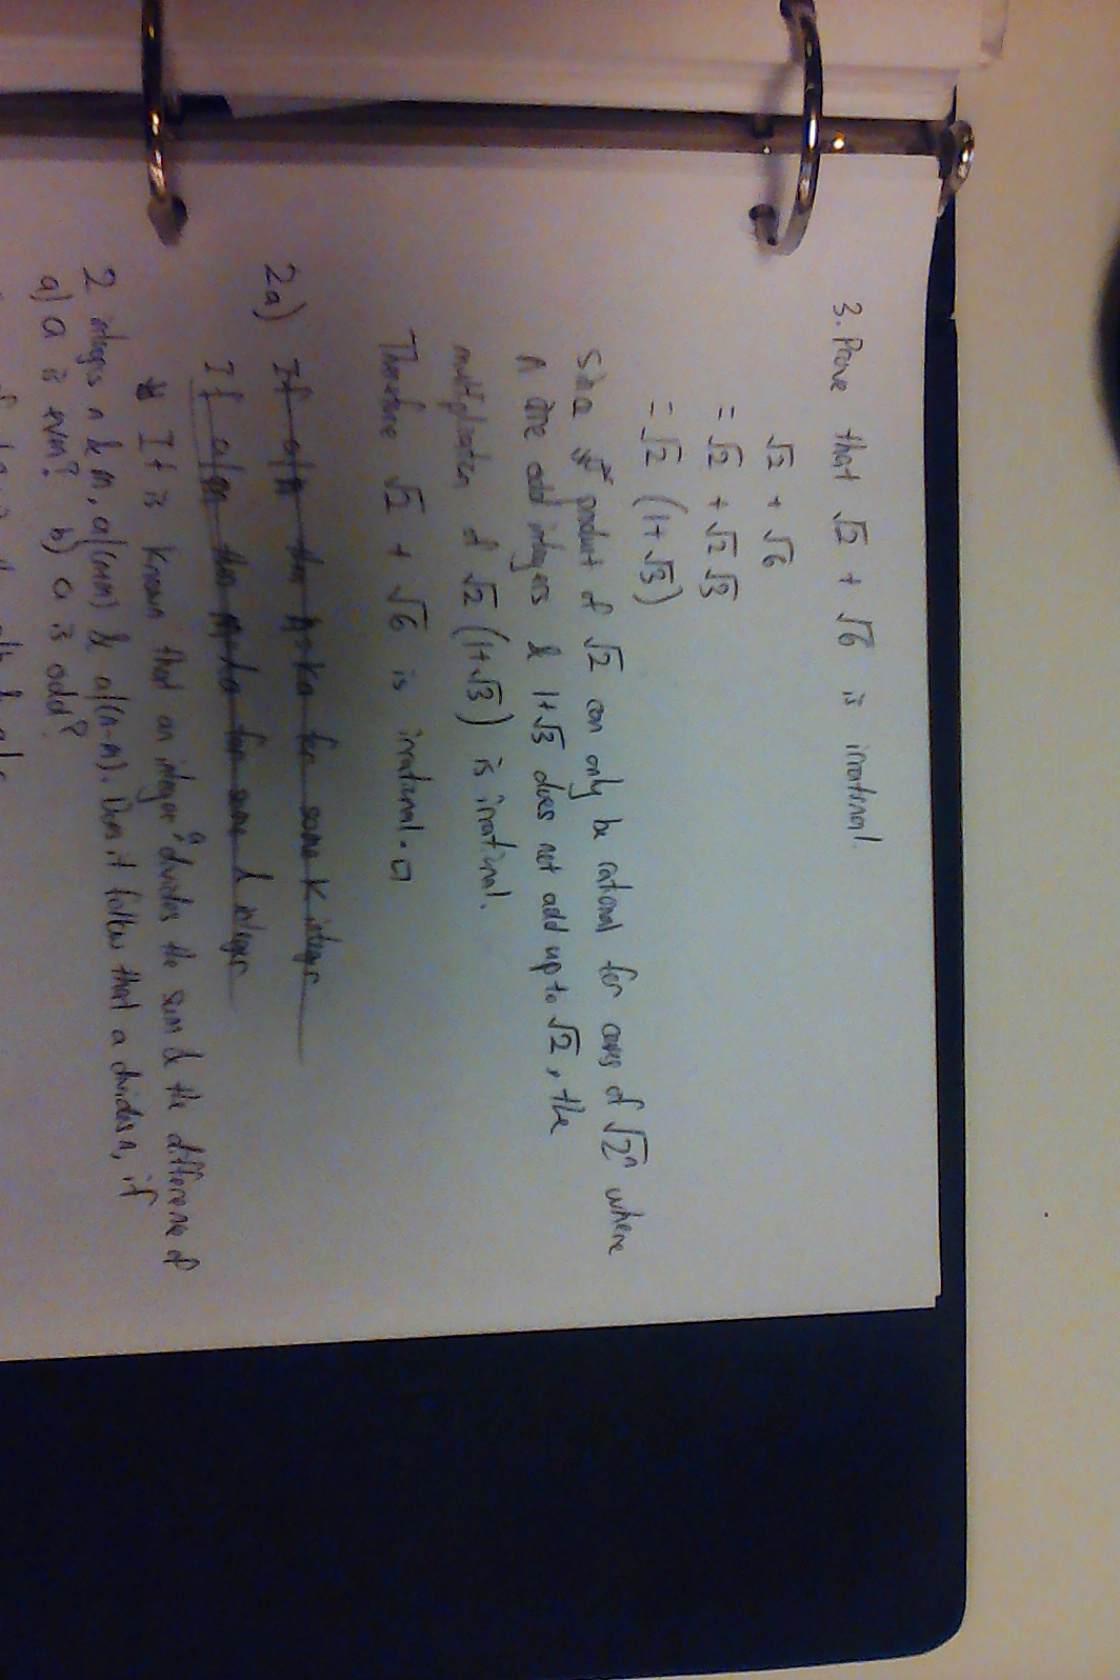 3. Prove that √2 + √6 is irrational.
√2 + √6
= √2 + √2 √3
= √2 (1+√3)
Since product of √2 can only be rational for cases of √2ⁿ where
n are odd integers & 1+√3 does not add up to √2, the
multiplication of √2 (1+√3) is irrational.
Therefore √2 + √6 is irrational. □
2a) If a/n then n=ka for some k integer
If a/m then m=la for some l integer
It is known that an integer a divides the sum & the difference of
2 integers n & m, a/(n+m) & a/(n-m). Does it follow that a divides n, if
a) a is even? b) a is odd?